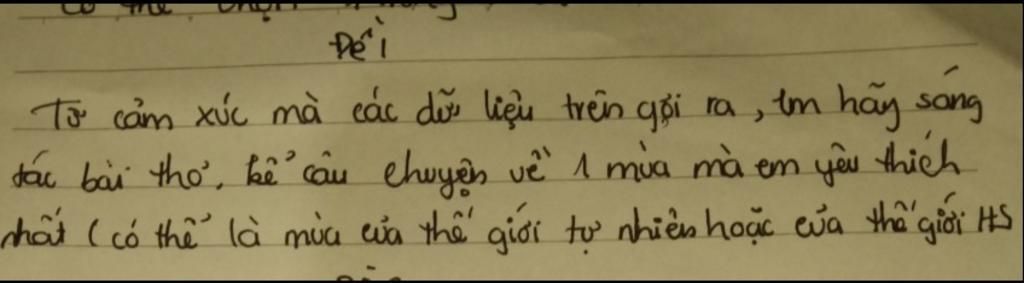 Đề 1
Từ cảm xúc mà các dữ liệu trên gợi ra, em hãy sáng
tác bài thơ, kể câu chuyện về 1 mùa mà em yêu thích
nhất (có thể là mùa của thế giới tự nhiên hoặc của thế giới HS